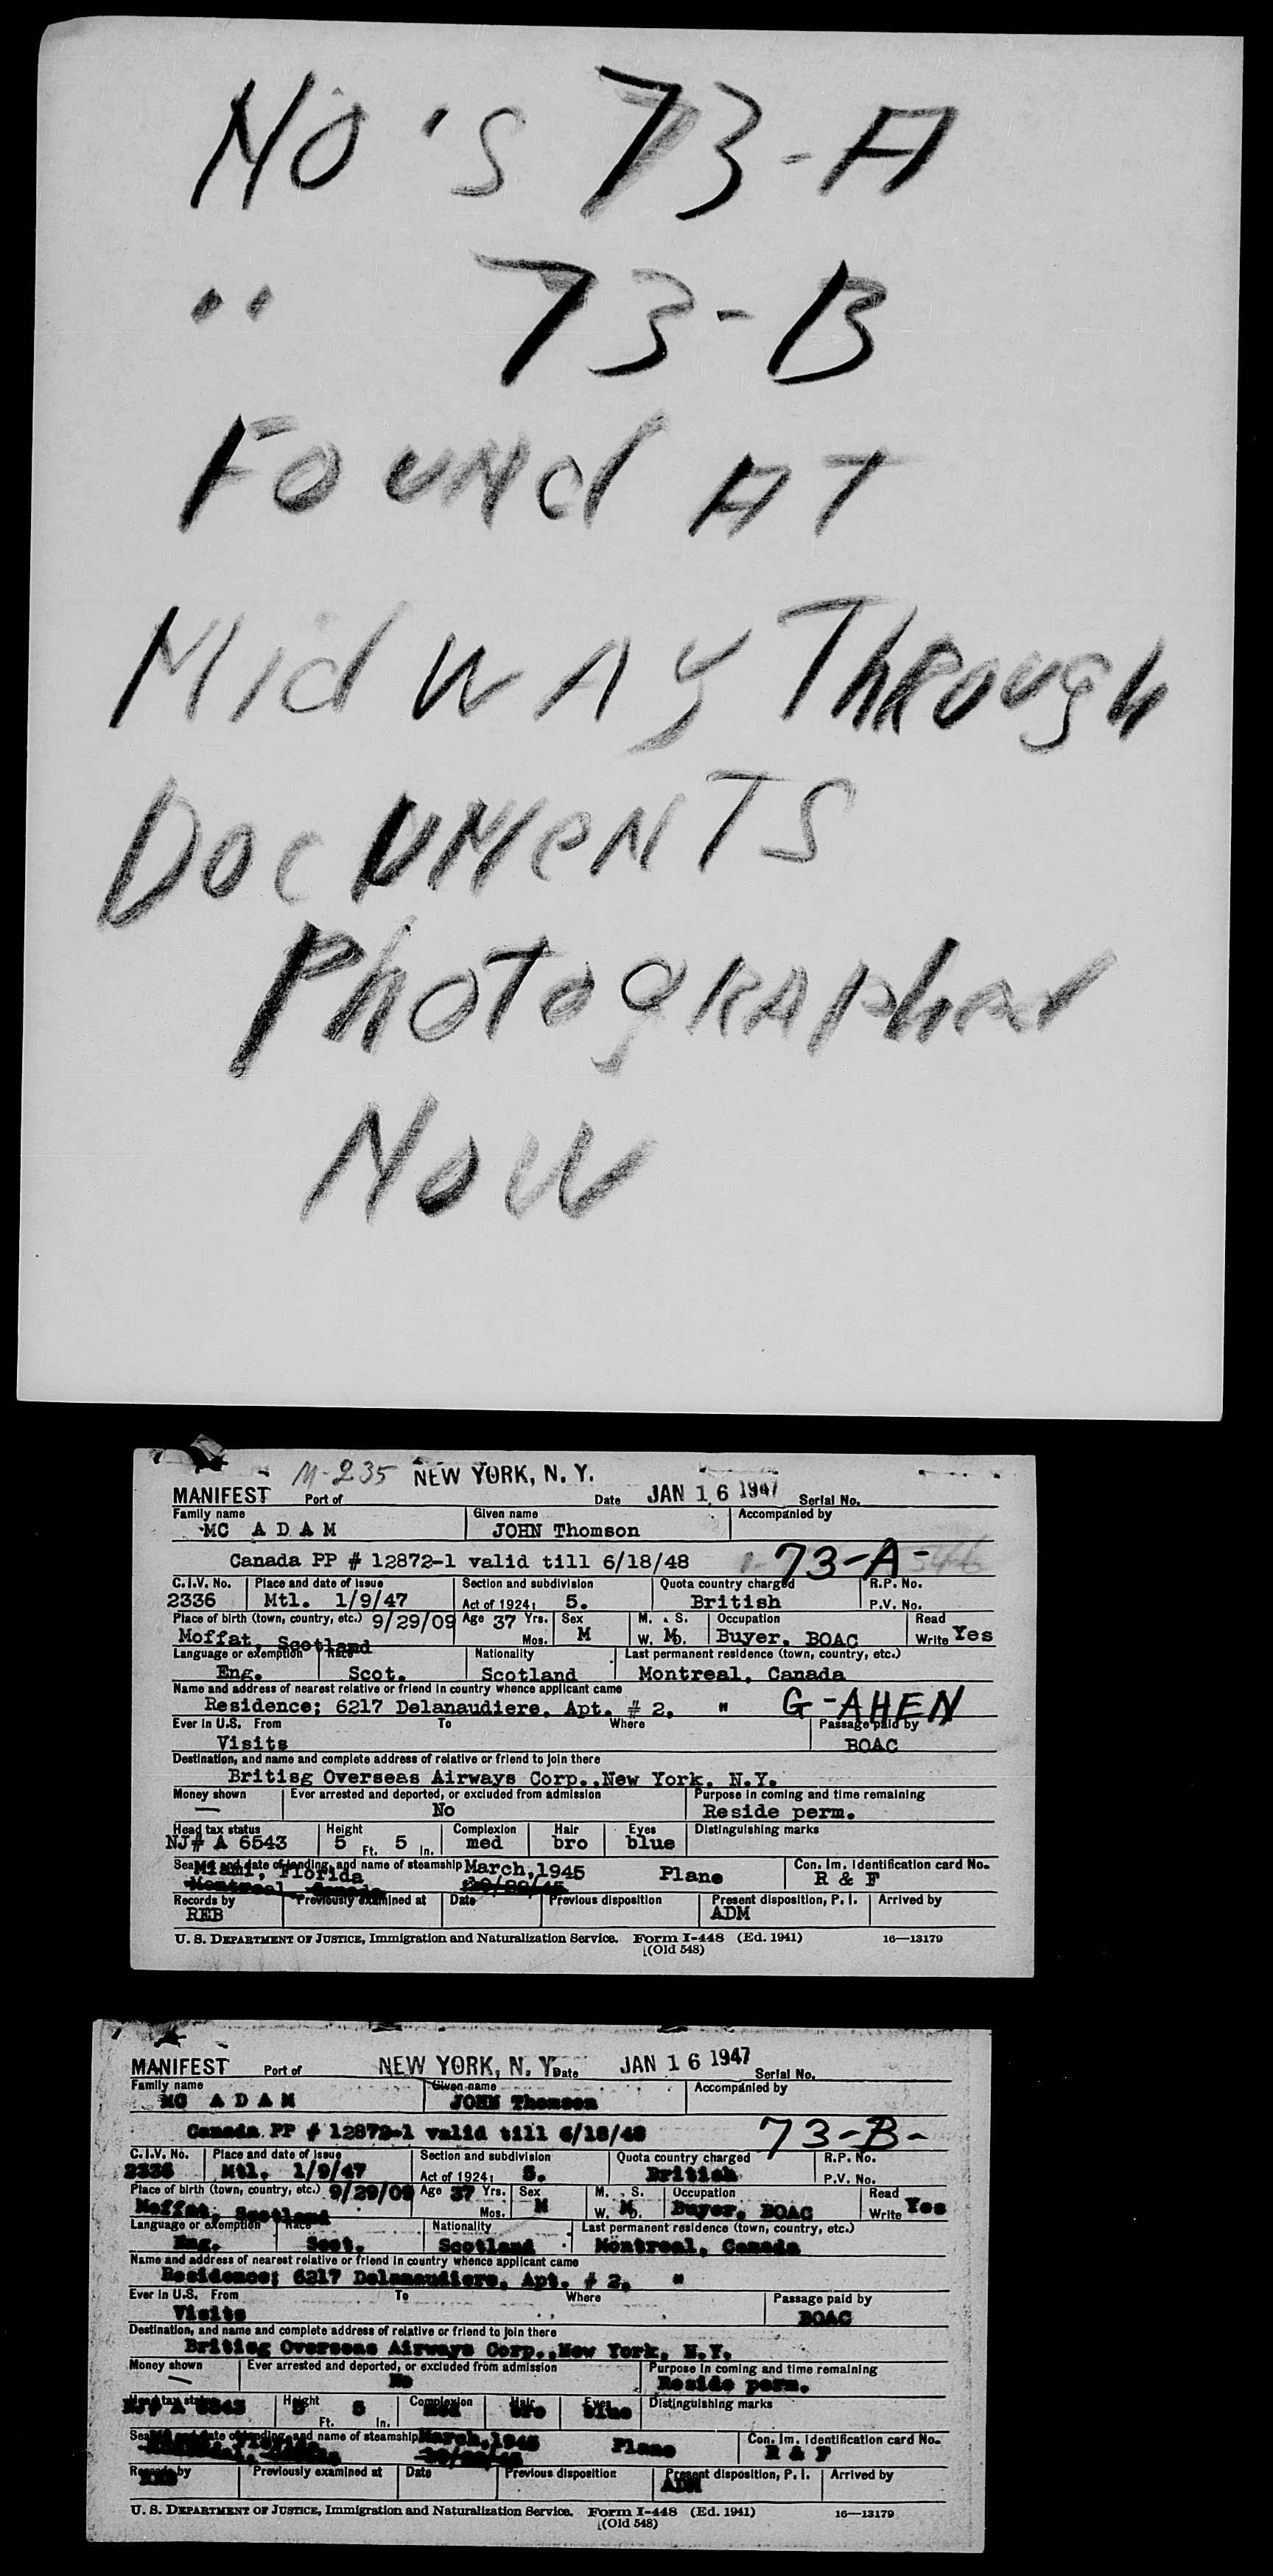 No's 73-A
" 73-B
Found AT
Midway Through
Documents
Photographed
Now
M-235 NEW YORK, N. Y.
MANIFEST Port of Date JAN 16 1947 Serial No.
Family name Given name Accompanied by
MC A D A M JOHN Thomson
Canada PP # 12872-1 valid till 6/18/48 73-A-
C.I.V. No. Place and date of issue Section and subdivision Quota country charged R.P. No.
2336 Mtl. 1/9/47 Act of 1924: 5. British P.V. No.
Place of birth (town, country, etc.) 9/29/09 Age 37 Yrs. Sex M. S. Occupation Read
Moffat, Scotland Mos. M W. M D. Buyer, BOAC Write Yes
Language or exemption Race Nationality Last permanent residence (town, country, etc.)
Eng. Scot. Scotland Montreal, Canada
Name and address of nearest relative or friend in country whence applicant came
Residence; 6217 Delanaudiere, Apt. # 2, " G-AHEN
Ever in U.S. From To Where Passage paid by
Visits BOAC
Destination, and name and complete address of relative or friend to join there
Britisg Overseas Airways Corp.,New York, N.Y.
Money shown Ever arrested and deported, or excluded from admission Purpose in coming and time remaining
— No Reside perm.
Head tax status Height Complexion Hair Eyes Distinguishing marks
NJ# A 6543 5 Ft. 5 In. med bro blue
Seaport and date of landing, and name of steamship March,1945 Plane Con. Im. Identification card No.
Miami, Florida R & F
Montreal, Canada
Records by Previously examined at Date Previous disposition Present disposition, P. I. Arrived by
REB ADM
U. S. DEPARTMENT OF JUSTICE, Immigration and Naturalization Service. Form I-448 (Ed. 1941) 16—13179
(Old 548)
MANIFEST Port of NEW YORK, N. Y. Date JAN 16 1947 Serial No.
Family name Given name Accompanied by
MC A D A M JOHN Thomson
Canada PP # 12872-1 valid till 6/18/48 73-B-
C.I.V. No. Place and date of issue Section and subdivision Quota country charged R.P. No.
2336 Mtl. 1/9/47 Act of 1924: 5. British P.V. No.
Place of birth (town, country, etc.) 9/29/09 Age 37 Yrs. Sex M. S. Occupation Read
Moffat, Scotland Mos. M W. M D. Buyer, BOAC Write Yes
Language or exemption Race Nationality Last permanent residence (town, country, etc.)
Eng. Scot. Scotland Montreal, Canada
Name and address of nearest relative or friend in country whence applicant came
Residence; 6217 Delanaudiere, Apt. # 2, "
Ever in U.S. From To Where Passage paid by
Visits BOAC
Destination, and name and complete address of relative or friend to join there
Britisg Overseas Airways Corp.,New York, N.Y.
Money shown Ever arrested and deported, or excluded from admission Purpose in coming and time remaining
— No Reside perm.
Head tax status Height Complexion Hair Eyes Distinguishing marks
NJ# A 6543 5 Ft. 5 In. med bro blue
Seaport and date of landing, and name of steamship March,1945 Plane Con. Im. Identification card No.
R & F
Records by Previously examined at Date Previous disposition Present disposition, P. I. Arrived by
REB ADM
U. S. DEPARTMENT OF JUSTICE, Immigration and Naturalization Service. Form I-448 (Ed. 1941) 16—13179
(Old 548)